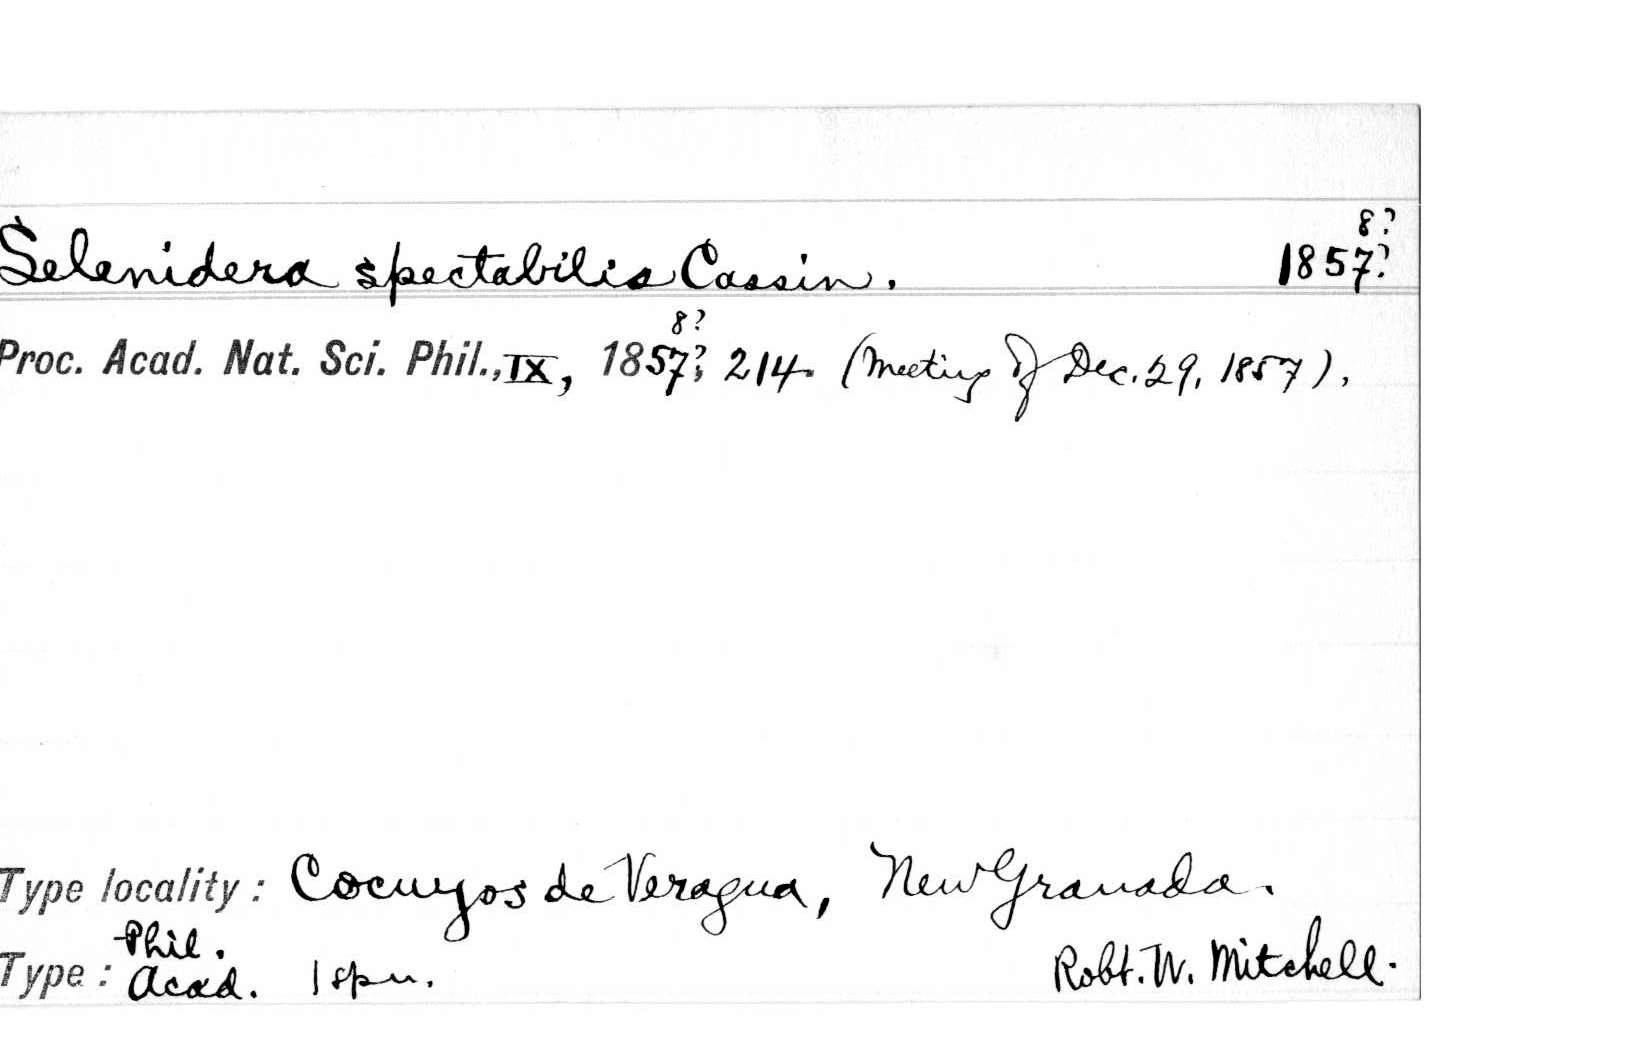 8?
Selenidera spectabilis Cassin. 1857?
8?
Proc. Acad. Nat. Sci. Phil., IX, 1857?, 214. (Meeting of Dec. 29, 1857).
Type locality: Cocuyos de Veragua, New Granada.
Phil.
Type: Acad. 1 spn. Robt. W. Mitchell.